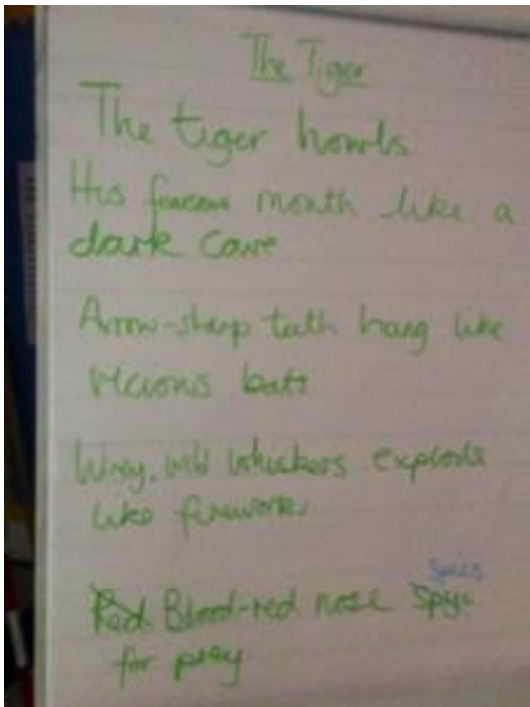 The Tiger
The tiger howls
His fearsome mouth like a
dark cave
Arrow-sharp teeth hang like
vicious bats
Wirey, wild whiskers explode
like fireworks
Red Blood-red nose spys spies
for prey